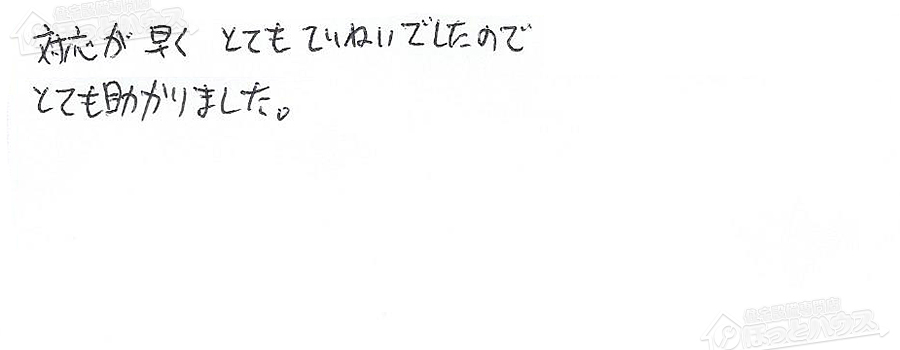 対応が早く とてもていねいでしたので
とても助かりました。
住宅設備専門店
ほっとハウス